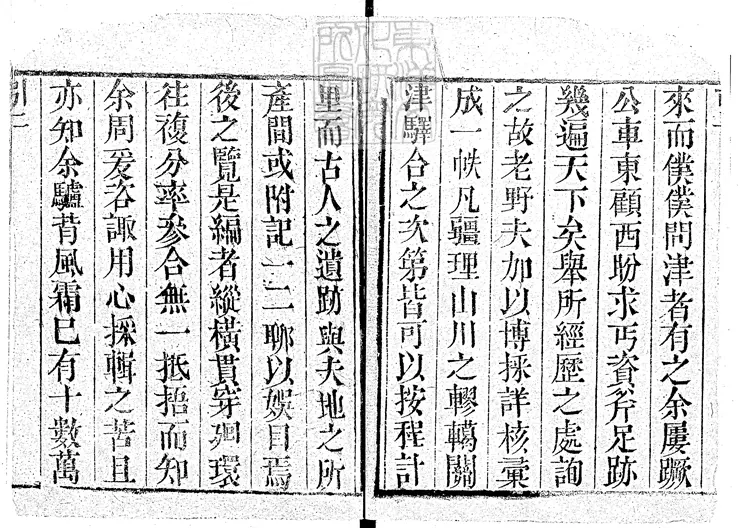 來而僕僕問津者有之余屢蹶
公車東顧西盼求丐資斧足跡
幾遍天下矣舉所經歷之處詢
之故老野夫加以博採詳核彙
成一帙凡疆理山川之轇轕關
津驛台之次第皆可以按程計
里而古人之遺跡與夫地之所
產間或附記一二聊以娛目焉
後之覽是編者縱橫貫穿廻環
往復分率參合無一抵捂而知
余周爰咨諏用心採輯之苦且
亦知余驢背風霜已有十數萬
引二